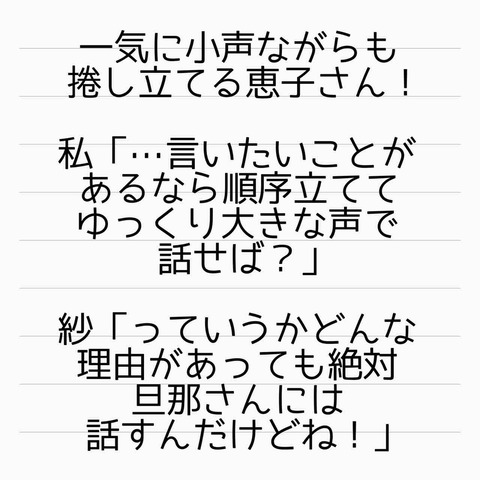 一気に小声ながらも
捲し立てる恵子さん！
私「…言いたいことが
あるなら順序立てて
ゆっくり大きな声で
話せば？」
紗「っていうかどんな
理由があっても絶対
旦那さんには
話すんだけどね！」